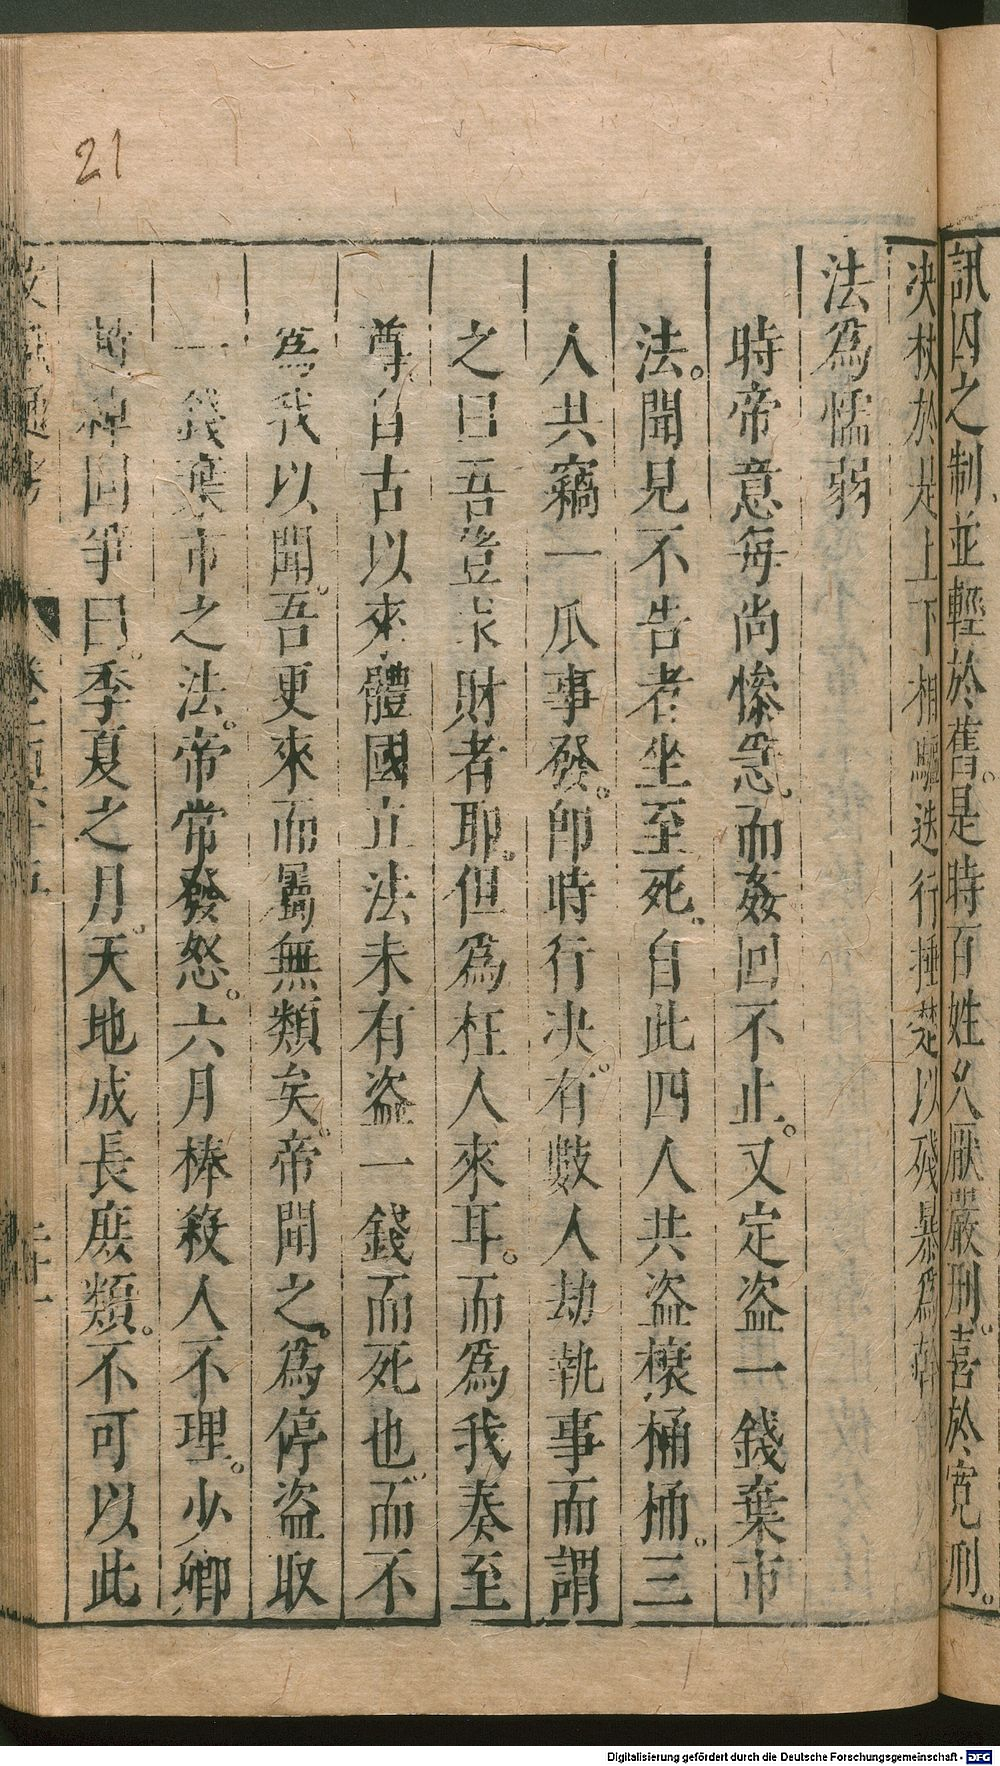 訊囚之制並輕於舊。是時百姓久厭嚴刑。喜於寬刑。
決杖於是上下相驅迭行捶楚以殘暴為幹
法為懦弱
時帝意每尚慘急。而姦回不止。又定盜一錢棄市
法。聞見不告者坐至死。自此四人共盜榱桶桶。三
人共竊一瓜事發。即時行決。有數人劫執事而謂
之曰吾豈求財者耶。但為枉人來耳。而為我奏至
尊。自古以來體國立法未有盜一錢而死也。而不
為我以聞。吾更來而屬無類矣。帝聞之。為停盜取
一錢棄市之法。帝常發怒。六月棒殺人不理。少卿
趙綽固爭曰。季夏之月。天地成長庶類。不可以此
文獻通考
卷之一百六十五
二十一
21
Digitalisierung gefördert durch die Deutsche Forschungsgemeinschaft - DFG